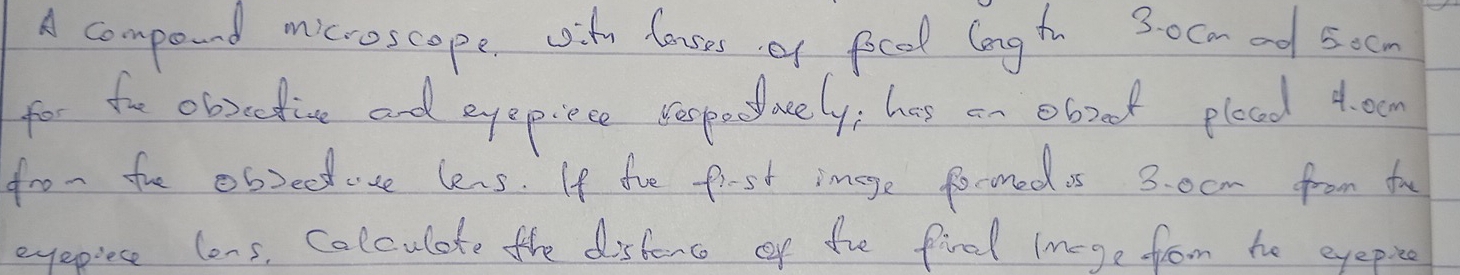 A compound microscope. with lenses of focal length 3.0cm ad 5.0cm
for the objective and eyepiece respectively; has an object placed 4.0cm
from the objective lens. If the first image formed is 3.0cm from the
eyepiece lens. Calculate the distance of the final image from he eyepiece